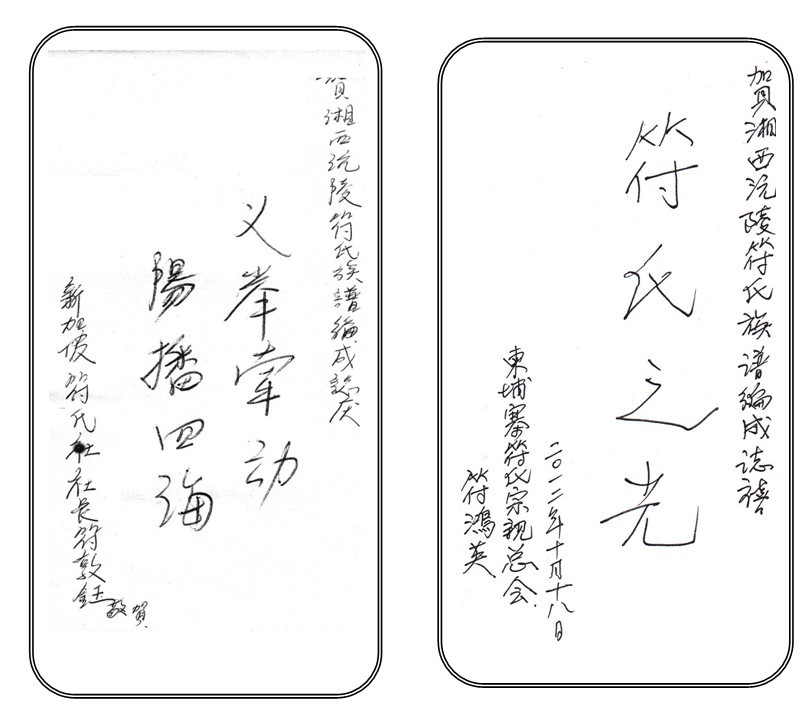 賀湘西沅陵符氏族譜編成誌庆
义举牵动
陽播四海
新加坡符氏社社长符敦鈺敬賀
贺湘西沅陵符氏族谱编成誌禧
符氏之光
二〇一二年十月十八日
柬埔寨符氏宗親总会.
符鴻英